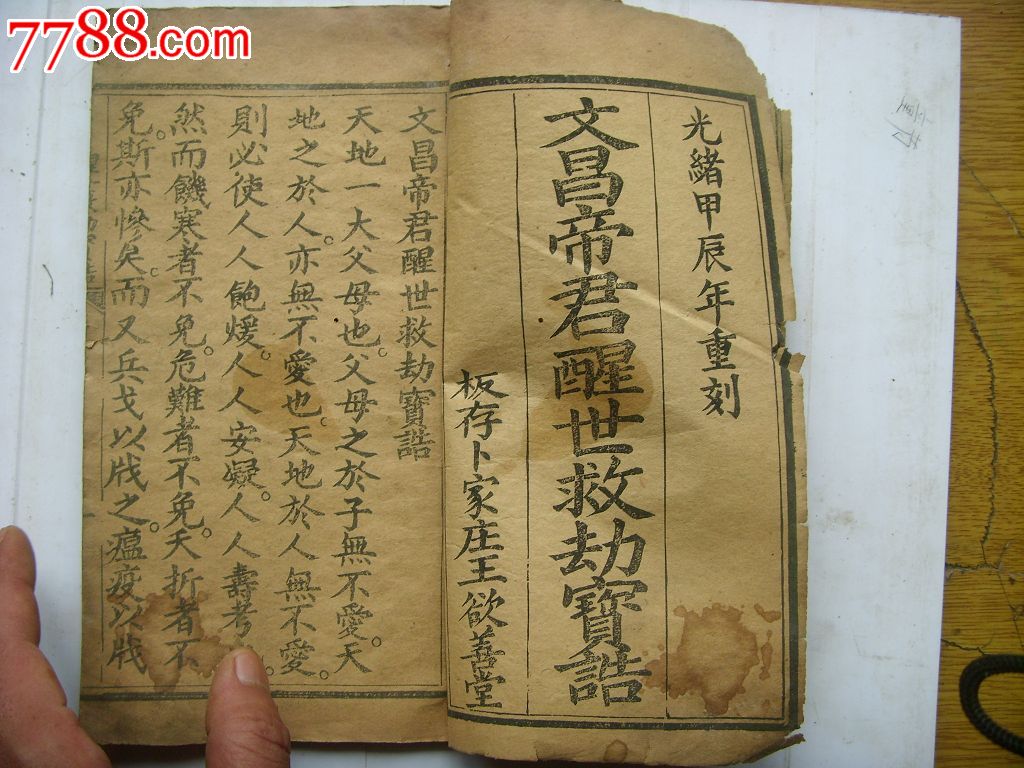 7788.com
光緒甲辰年重刻
文昌帝君醒世救劫寶誥
板存卜家庄王欲善堂
文昌帝君醒世救劫寶誥
天地一大父母也。父母之於子無不愛。天
地之於人。亦無不愛也。天地於人無不愛。
則必使人人飽煖。人人安凝。人人壽考。
然而饑寒者不免。危難者不免。夭折者不
免。斯亦慘矣。而又兵戈以戕之。瘟疫以戕